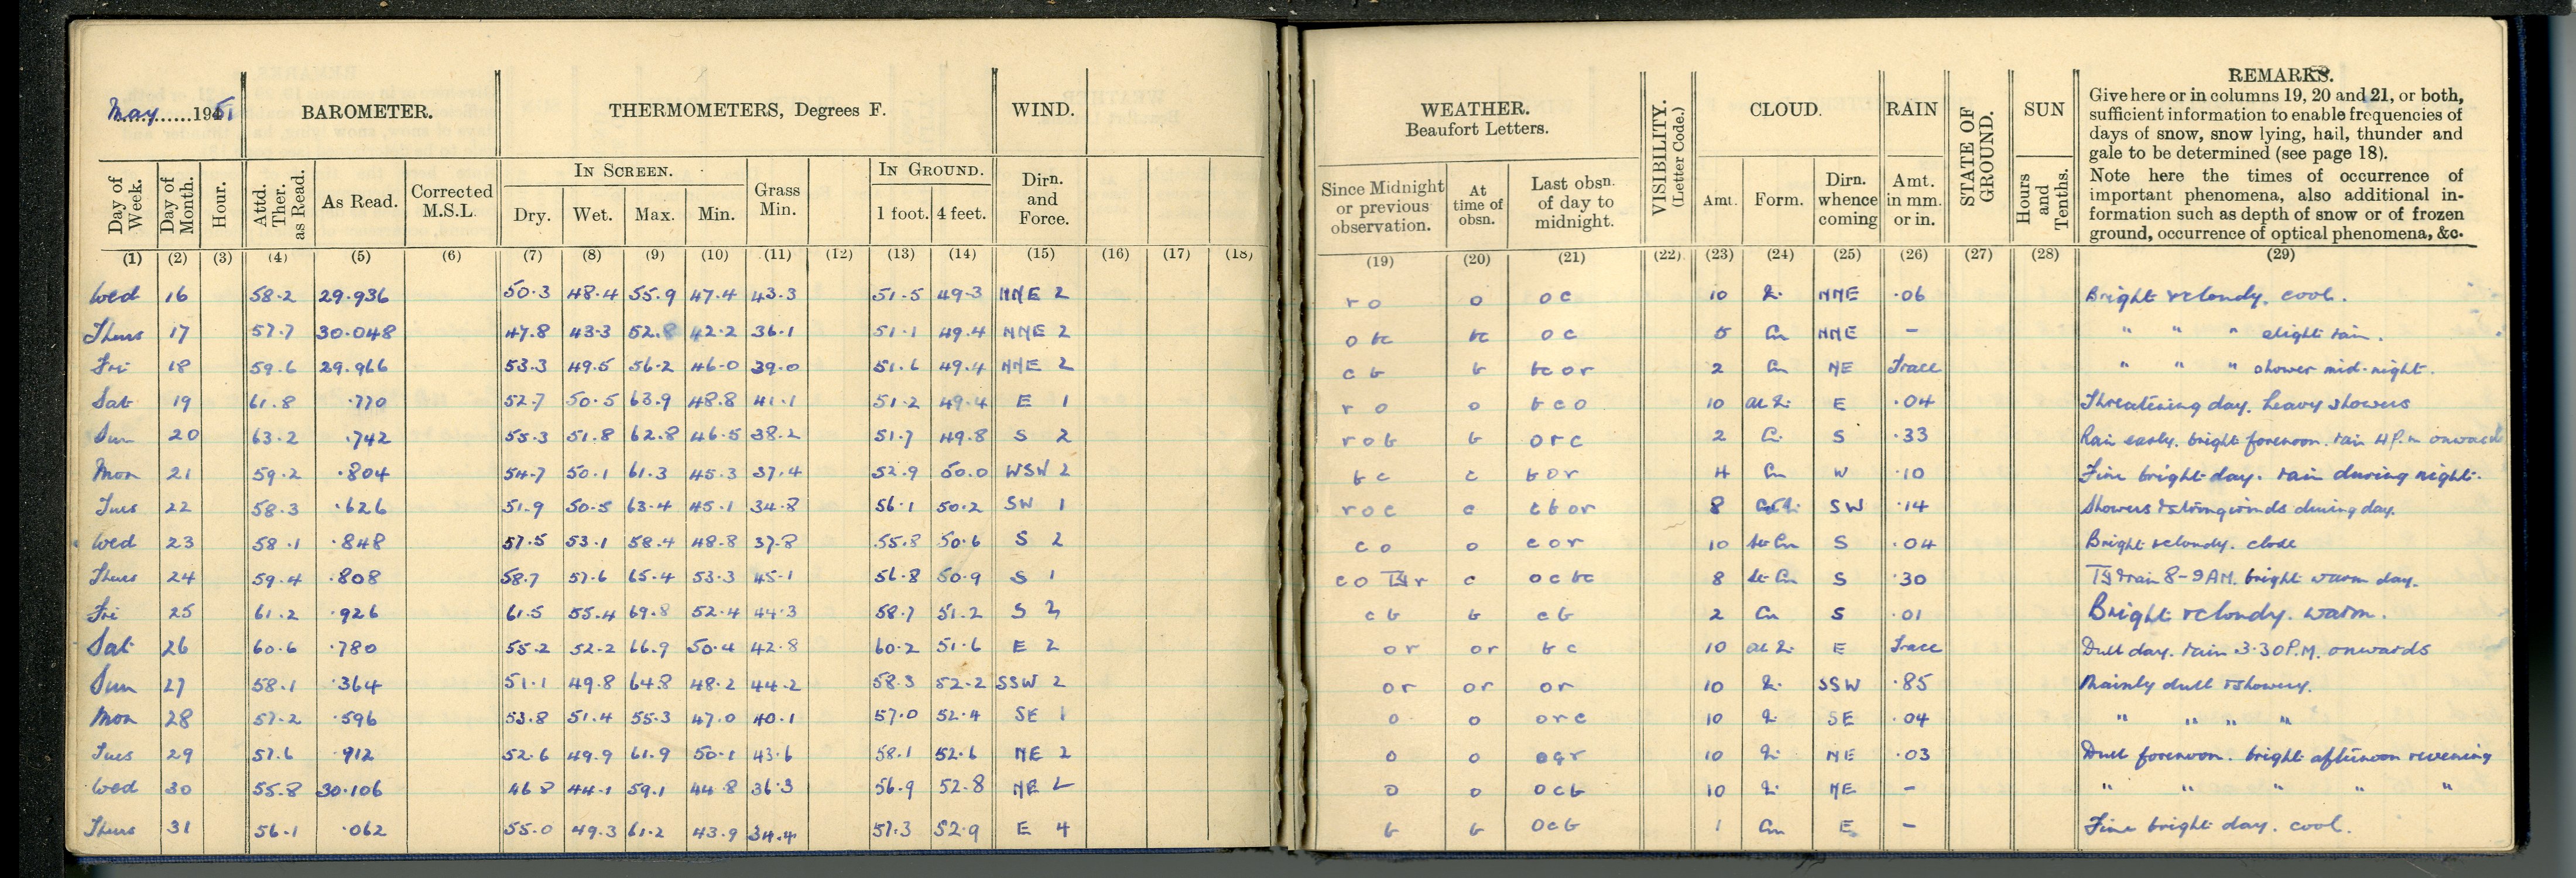 May 1951 BAROMETER. THERMOMETERS, Degrees F. WIND.
Day of Week. Day of Month. Hour. Attd. Ther. as Read. As Read. Corrected M.S.L. IN SCREEN. Dry. Wet. Max. Min. Grass Min. IN GROUND. 1 foot. 4 feet. Dirn. and Force.
(1) (2) (3) (4) (5) (6) (7) (8) (9) (10) (11) (12) (13) (14) (15) (16) (17) (18)
Wed 16 58.2 29.936 50.3 48.4 55.9 47.4 43.3 51.5 49.3 NNE 2
Thurs 17 57.7 30.048 47.8 43.3 52.8 42.2 36.1 51.1 49.4 NNE 2
Fri 18 59.6 29.966 53.3 49.5 56.2 46.0 39.0 51.6 49.4 NNE 2
Sat 19 61.8 .770 52.7 50.5 63.9 48.8 41.1 51.2 49.4 E 1
Sun 20 63.2 .742 55.3 51.8 62.8 46.5 38.2 51.7 49.8 S 2
Mon 21 59.2 .804 54.7 50.1 61.3 45.3 37.4 52.9 50.0 WSW 2
Tues 22 58.3 .626 51.9 50.5 63.4 45.1 34.8 56.1 50.2 SW 1
Wed 23 58.1 .848 57.5 53.1 58.4 48.8 37.8 55.8 50.6 S 2
Thurs 24 59.4 .808 58.7 57.6 65.4 53.3 45.1 56.8 50.9 S 1
Fri 25 61.2 .926 61.5 55.4 69.8 52.4 44.3 58.7 51.2 S 2
Sat 26 60.6 .780 55.2 52.2 66.9 50.4 42.8 60.2 51.6 E 2
Sun 27 58.1 .364 51.1 49.8 64.8 48.2 44.2 58.3 52.2 SSW 2
Mon 28 57.2 .596 53.8 51.4 55.3 47.0 40.1 57.0 52.4 SE 1
Tues 29 57.6 .912 52.6 49.9 61.9 50.1 43.6 58.1 52.6 NE 2
Wed 30 55.8 30.106 46.8 44.1 59.1 44.8 36.3 56.9 52.8 NE 2
Thurs 31 56.1 .062 55.0 49.3 61.2 43.9 34.4 57.3 52.9 E 4
WEATHER. Beaufort Letters. VISIBILITY. (Letter Code.) CLOUD. RAIN STATE OF GROUND. SUN REMARKS.
Give here or in columns 19, 20 and 21, or both,
sufficient information to enable frequencies of
days of snow, snow lying, hail, thunder and
gale to be determined (see page 18).
Note here the times of occurrence of
important phenomena, also additional in-
formation such as depth of snow or of frozen
ground, occurrence of optical phenomena, &c.
Since Midnight or previous observation. At time of obsn. Last obsn. of day to midnight. Amt. Form. Dirn. whence coming Amt. in mm. or in. Hours and Tenths.
(19) (20) (21) (22) (23) (24) (25) (26) (27) (28) (29)
r o o o c 10 NNE .06 Bright & cloudy. cool.
o bc bc o c 5 Cu NNE - " " " slight rain.
c b b bc o r 2 Cu NE Trace " " " shower mid-night.
r o o b c o 10 E .04 Threatening day. heavy showers
r o b b o r c 2 Ci S .33 Rain early. bright forenoon. rain 4 P.m onward
b c c b o r 4 Cu W .10 Fine bright day. rain during night.
r o c c c b o r 8 SW .14 Showers & strong winds during day.
c o o c o r 10 S .04 Bright & cloudy. close
c o r c o c bc 8 S .30 & rain 8-9 AM. bright warm day.
c b b c b 2 Cu S .01 Bright & cloudy. warm.
o r o r b c 10 E Trace Dull day. rain 3.30 P.M. onwards
o r o r o r 10 SSW .85 Mainly dull & showery.
o o o r c 10 SE .04 " " " "
o o 10 NE .03 Dull forenoon. bright afternoon & evening
o o o c b 10 NE - " " " " "
b b o c b 1 Cu E - Fine bright day. cool.